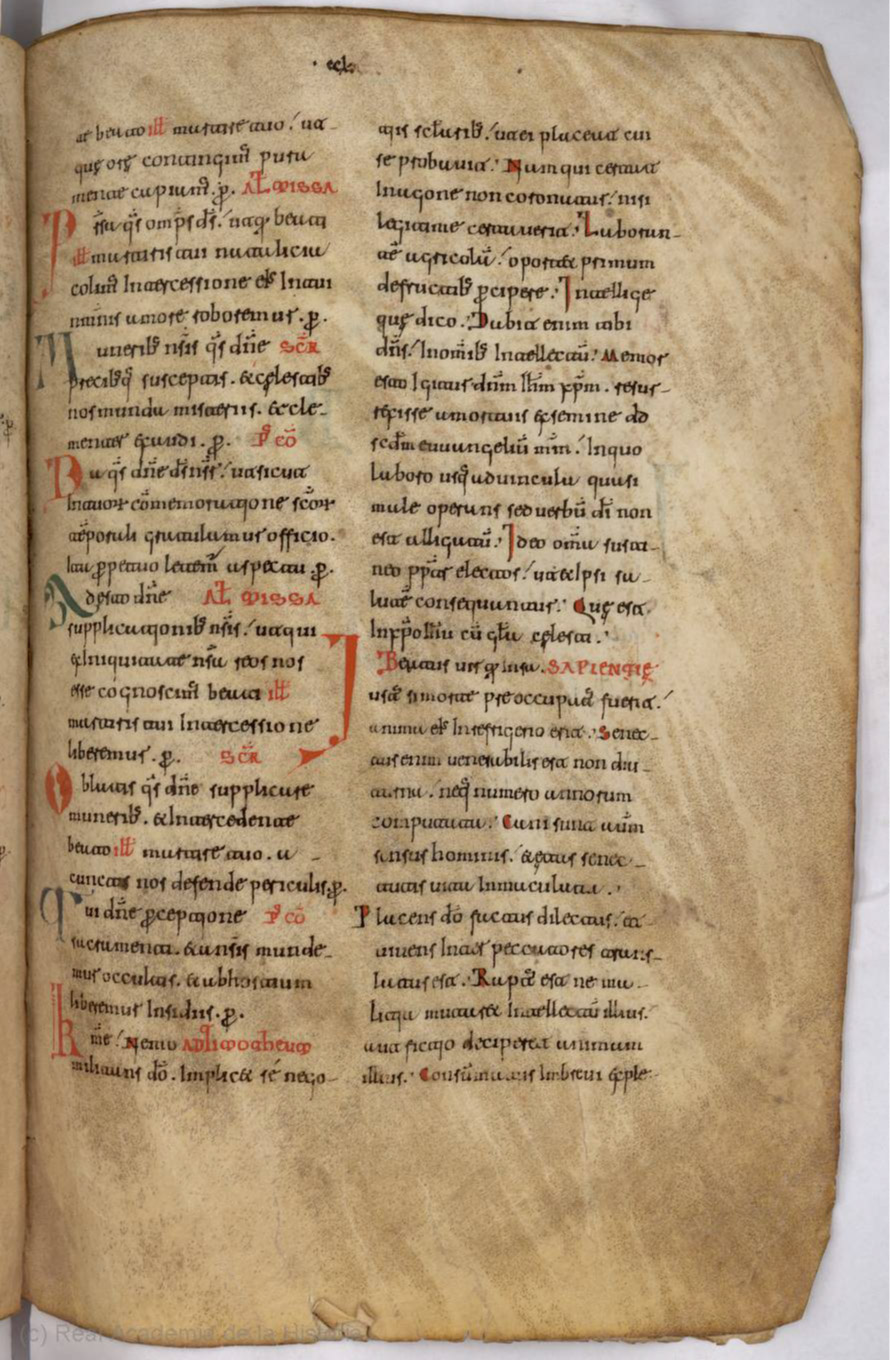 · ccl.
te beato ill martire tuo. ut
quę orę contingim̄ pura
mente capiam̄. p̄. AL̄ MISSA
P r̄sta q̄s omp̄s ds̄. ut qui beati
ill martiris tui natalicia
colim̄ Intercessione eiꝰ In tui
nominis amore roboremur. p̄.
M unerib; nr̄is q̄s dn̄e SCR̄
precib;q; susceptis. & cęlestib;
nos munda misteriis. & cle-
menter exaudi. p̄. P̄ CŌ
D a q̄s dn̄e ds̄ nr̄. ut sicut
In tuoꝝ cōmemoratione sc̄oꝝ
tēporali gratulamur officio.
Ita p̄petuo letem̄ aspectu p̄.
A desto dn̄e AL̄ MISSA
supplicationib; nr̄is. ut qui
ex Iniquitate nr̄a reos nos
esse cognoscim̄ beati ill
martiris tui Intercessione
liberemur. p̄. SCR̄
O blatis q̄s dn̄e supplicare
munerib;. & Intercedente
beato ill martire tuo. a
cunctis nos defende periculis p̄.
Q ui dn̄e p̄ceptione P̄ CŌ
sacramenti. & a nr̄is munde-
mur occultis. & ab hostium
liberemur Insidiis. p̄.
K m̄e. Nemo AD TIMOTHEUM
militans dō. Implicat se nego-
tiis sc̄larib;. ut ei placeat cui
se probavit. Nam qui certat
In agone non coronatur. nisi
legitime certaverit. Laboran-
tē agricolā. oportet primum
de fructib; p̄cipere. Intellige
quę dico. Dabit enim tibi
dn̄s. In omīb; Intellectū. Memor
esto Igitur dn̄m Ih̄m xp̄m. resur-
rexisse a mortuis ex semine dd̄
scdm̄ evangeliū mm̄. In quo
laboro usq; ad vincula quasi
male operans sed verbū dī non
est alligatū. Ideo om̄ia susti-
neo pp̄ter electos. ut & Ipsi sa-
lutē consequantur. Que est
In xp̄o Ih̄u cū gl̄a cęlesti.
I Beatus vir qui Inv. SAPIENTIĘ
ustꝰ si morte preoccupatꝰ fuerit.
anima eiꝰ In refrigerio erit. Senec-
tus enim venerabilis est non diu-
turna. neq; numero annorum
computata. Cani sunt autm̄
sensus hominis. & ętas senec-
tutis vita Inmaculata.
P lacens dō factus dilectus. et
vivens Inter peccatores trans-
latus est. Raptꝰ est ne ma-
litia mutaret Intellectū illius.
aut fictio deciperet animum
illius. Consūmatus In brevi exple-